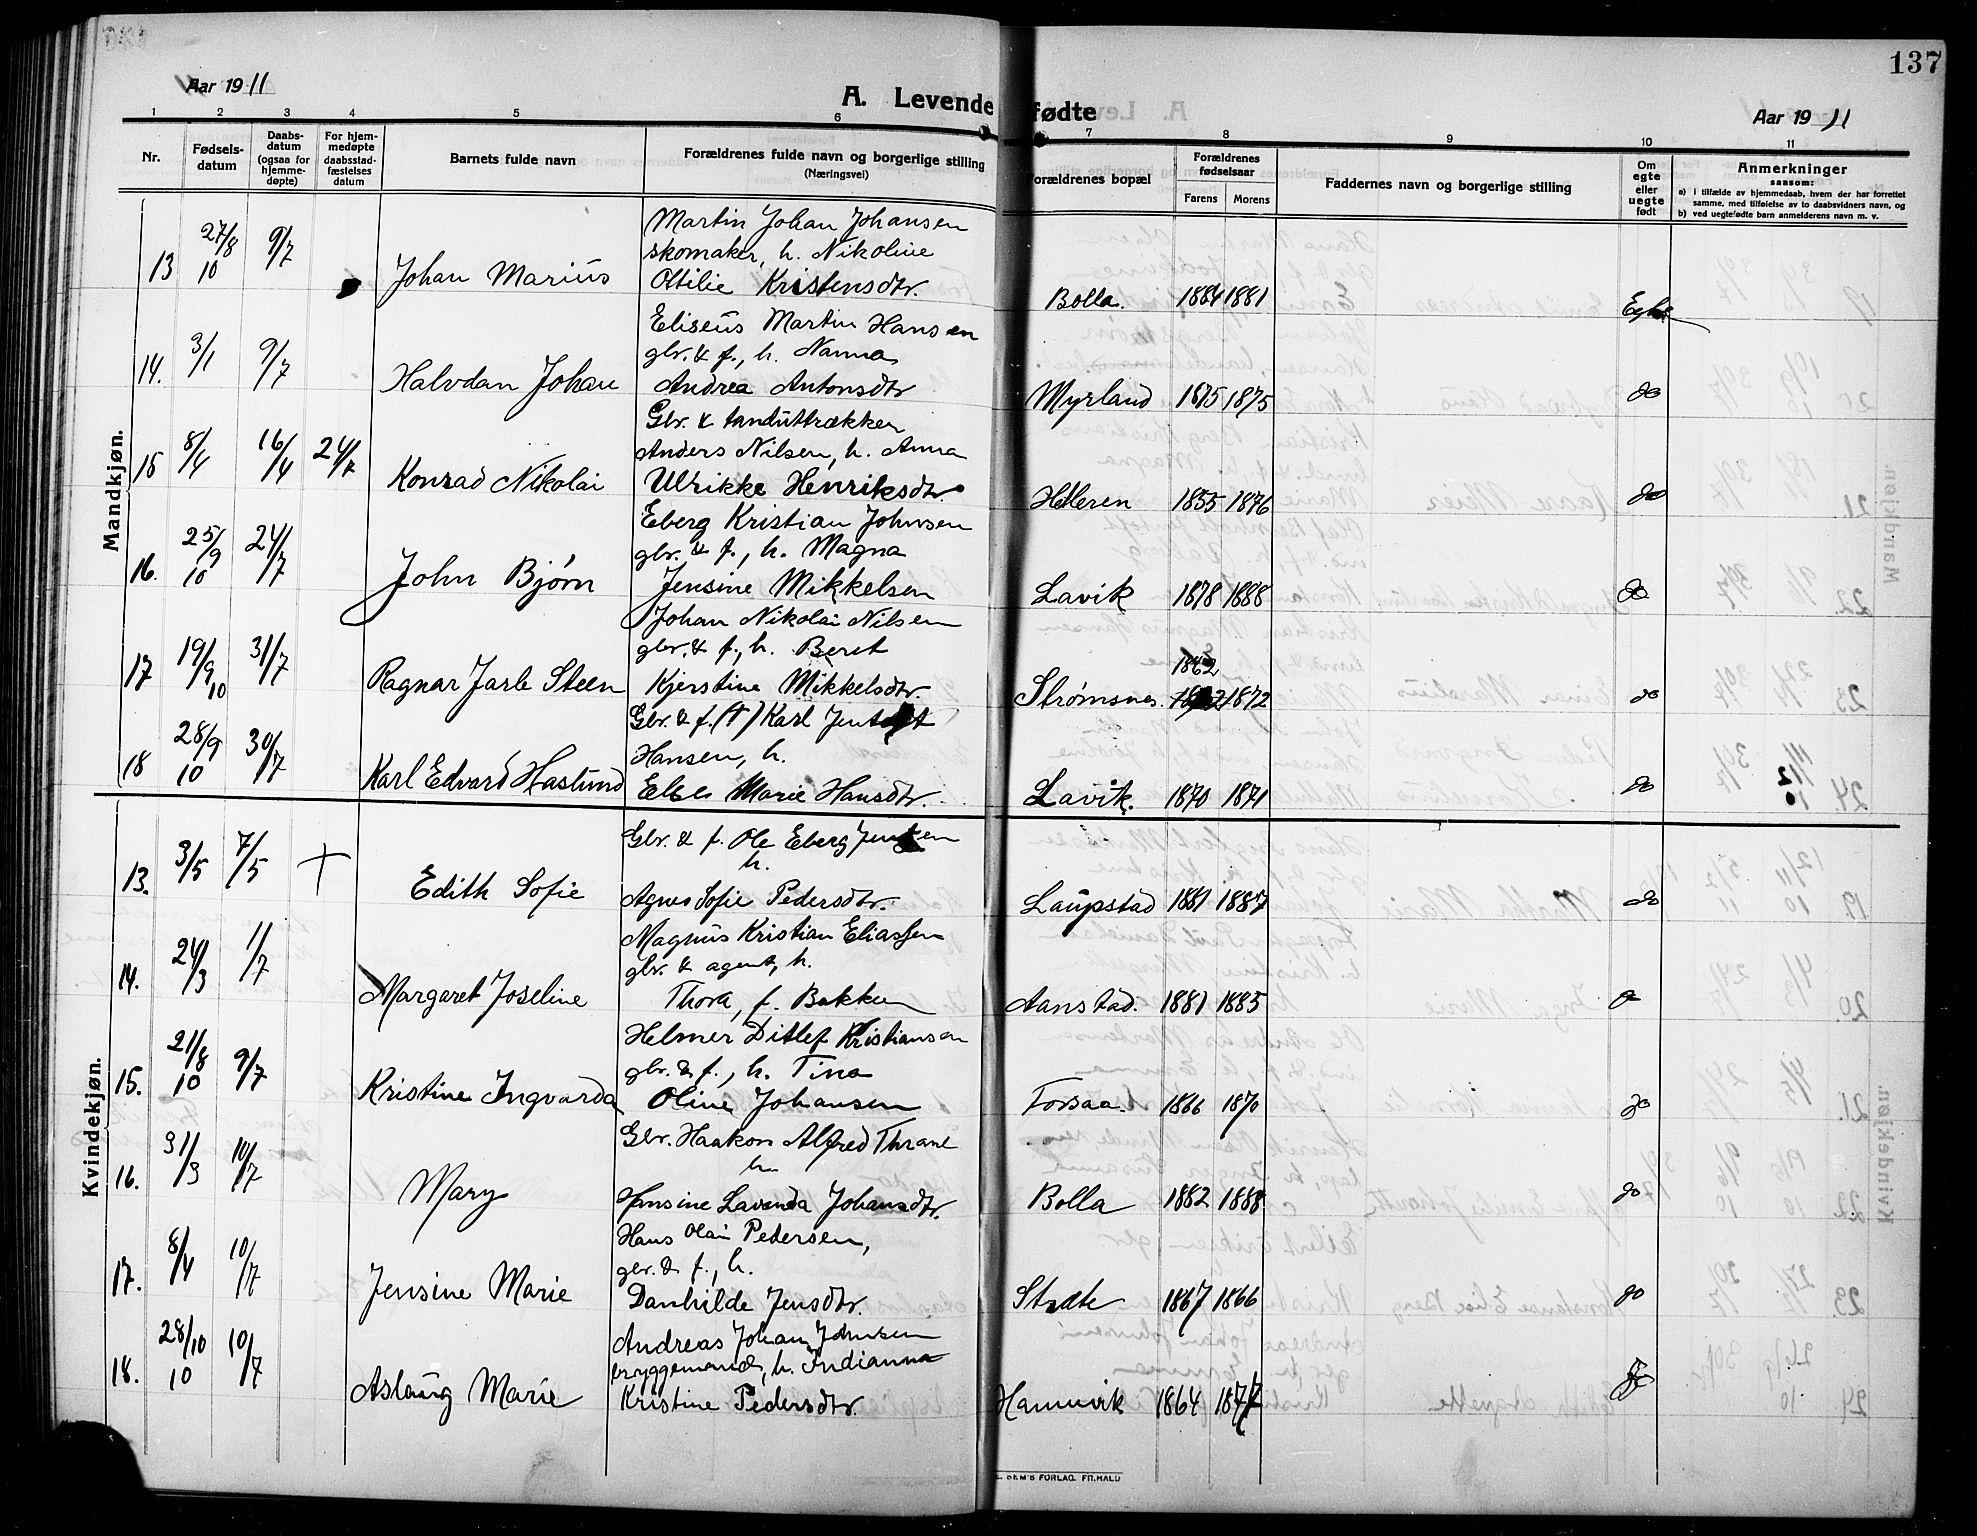 137
Aar 1911
A. Levende fødte
Aar 1911
1 2 3 4 5 6 7 8 9 10 11
Nr.
Fødsels-
datum
Daabs-
datum
(ogsaa for
hjemme-
døpte)
For hjem-
medøpte
daabsstad-
fæstelses
datum
Barnets fulde navn
Forældrenes fulde navn og borgerlige stilling
(Næringsvei)
Forældrenes bopæl
Forældrenes
fødselsaar
Farens Morens
Faddernes navn og borgerlige stilling
Om
egte
eller
uegte
født
Anmerkninger
saasom:
a) i tilfælde av hjemmedaab, hvem der har forrettet
samme, med tilføielse av to daabsvidners navn, og
b) ved uegtefødte barn anmelderens navn m. v.
Mandkjøn.
Martin Johan Johansen
skomaker, h. Nikoline
13 27/8 10 9/7 Johan Marius Otilie Kristensdtr. Bolla. 1884 1881 Egte
Eliseus Martin Hansen
gbr. & f., h. Nanna
14. 3/1 9/7 Halvdan Johan Andrea Antonsdtr Myrland 1875 1875 do
Gbr. & tandutrækker
Anders Nilsen, h. Anna
15 8/4 16/4 24/7 Konrad Nikolai Ulrikke Henriksdtr. Helleren 1855 1876 do
Eberg Kristian Johnsen
gbr. & f., h. Magna
16. 25/9 10 24/7 John Bjørn Jensine Mikkelsen Lavik 1878 1888 do
Johan Nikolai Nilsen
gbr. & f., h. Berit
1862
17 19/9 10 31/7 Ragnar Jarle Steen Kjerstine Mikkelsdtr. Strømsnes. 1872
Gbr. & f. (†) Karl Jentoft
Hansen, h.
18 28/9 10 30/7 Karl Edvard Haslund Else Marie Hansdtr. Lavik. 1870 1871 do
Kvindekjøn.
Gbr. & f. Ole Eberg Jensen
h.
13. 3/5 7/5 † Edith Sofie Agnes Sofie Pedersdtr. Laupstad 1881 1887 do
Magnus Kristian Eliassen
gbr. & agent, h.
14. 24/3 1/7 Margaret Joseline Thora, f. Bakken Aanstad. 1881 1885 do
Helmer Ditlef Kristiansen
gbr. & f., h. Tina
15. 21/8 10 9/7 Kristine Ingvarda Oline Johansen Forsaa. 1866 1870 do
Gbr. Haakon Alfred Thrane
h.
16. 31/3 10/7 Mary Hansine Lavenda Johansdtr. Bolla 1882 1888 do
Hans Olai Pedersen,
gbr. & f., h.
17. 8/4 10/7 Jensine Marie Danhilde Jensdtr. Stræte 1867 1866 do
Andreas Johan Johnsen
bryggemand, h. Indianna
18. 28/10 10 10/7 Aslaug Marie Kristine Pedersdtr. Hamnvik 1864 1877 do
SEM'S FORLAG. FR.HALD